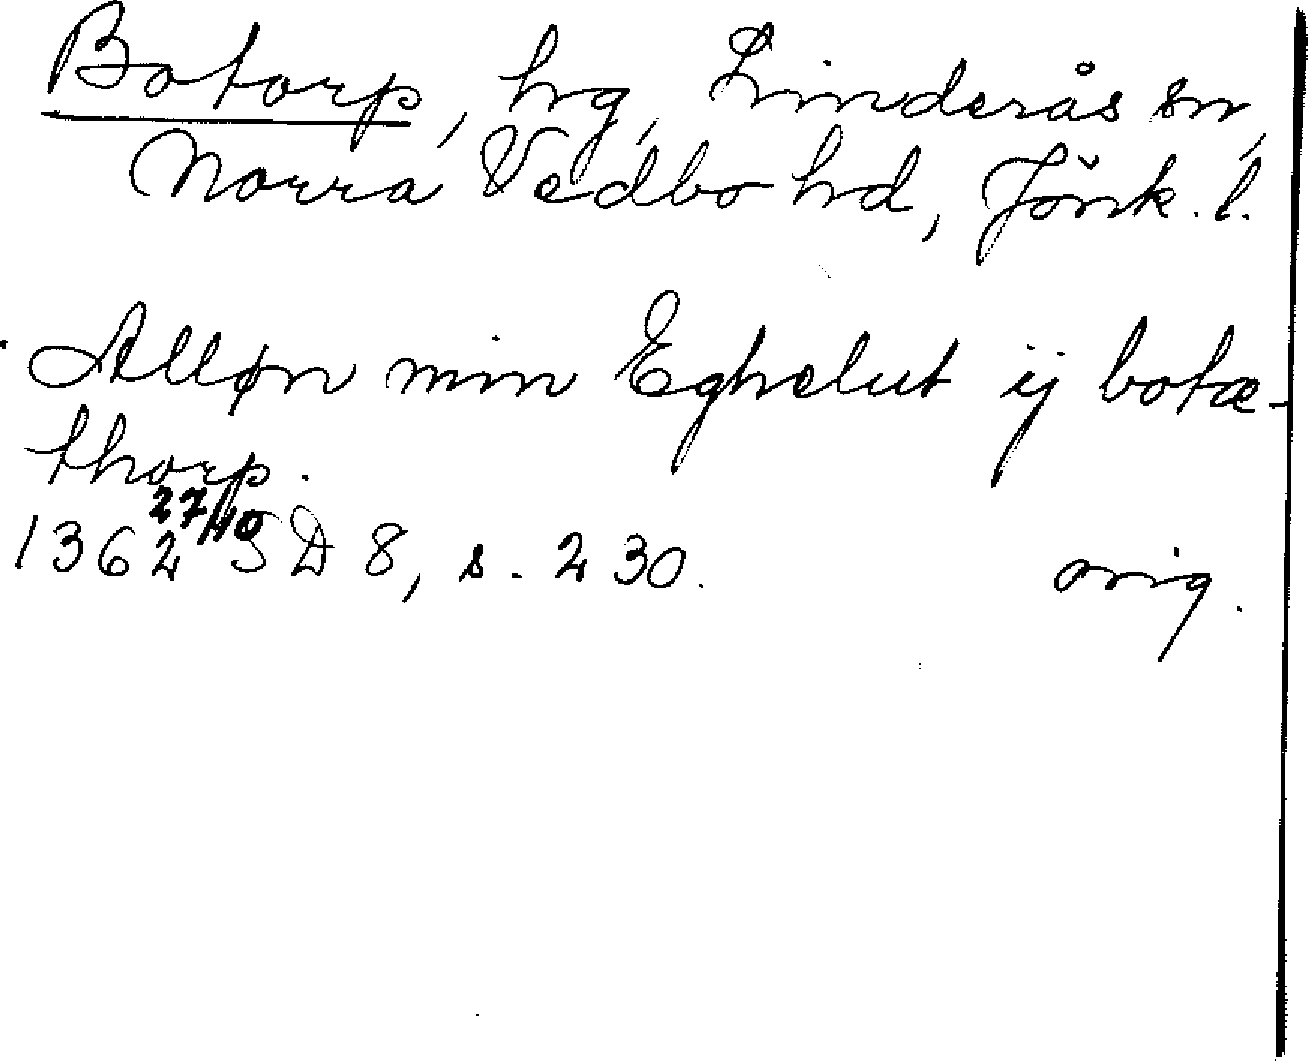 Botorp, hg, Linderås sn,
Norra Vedbo hd, Jönk. l.
Alløn min Eghelut ij botæ-
thorp.
1362 27/10 SD 8, s. 230. orig.